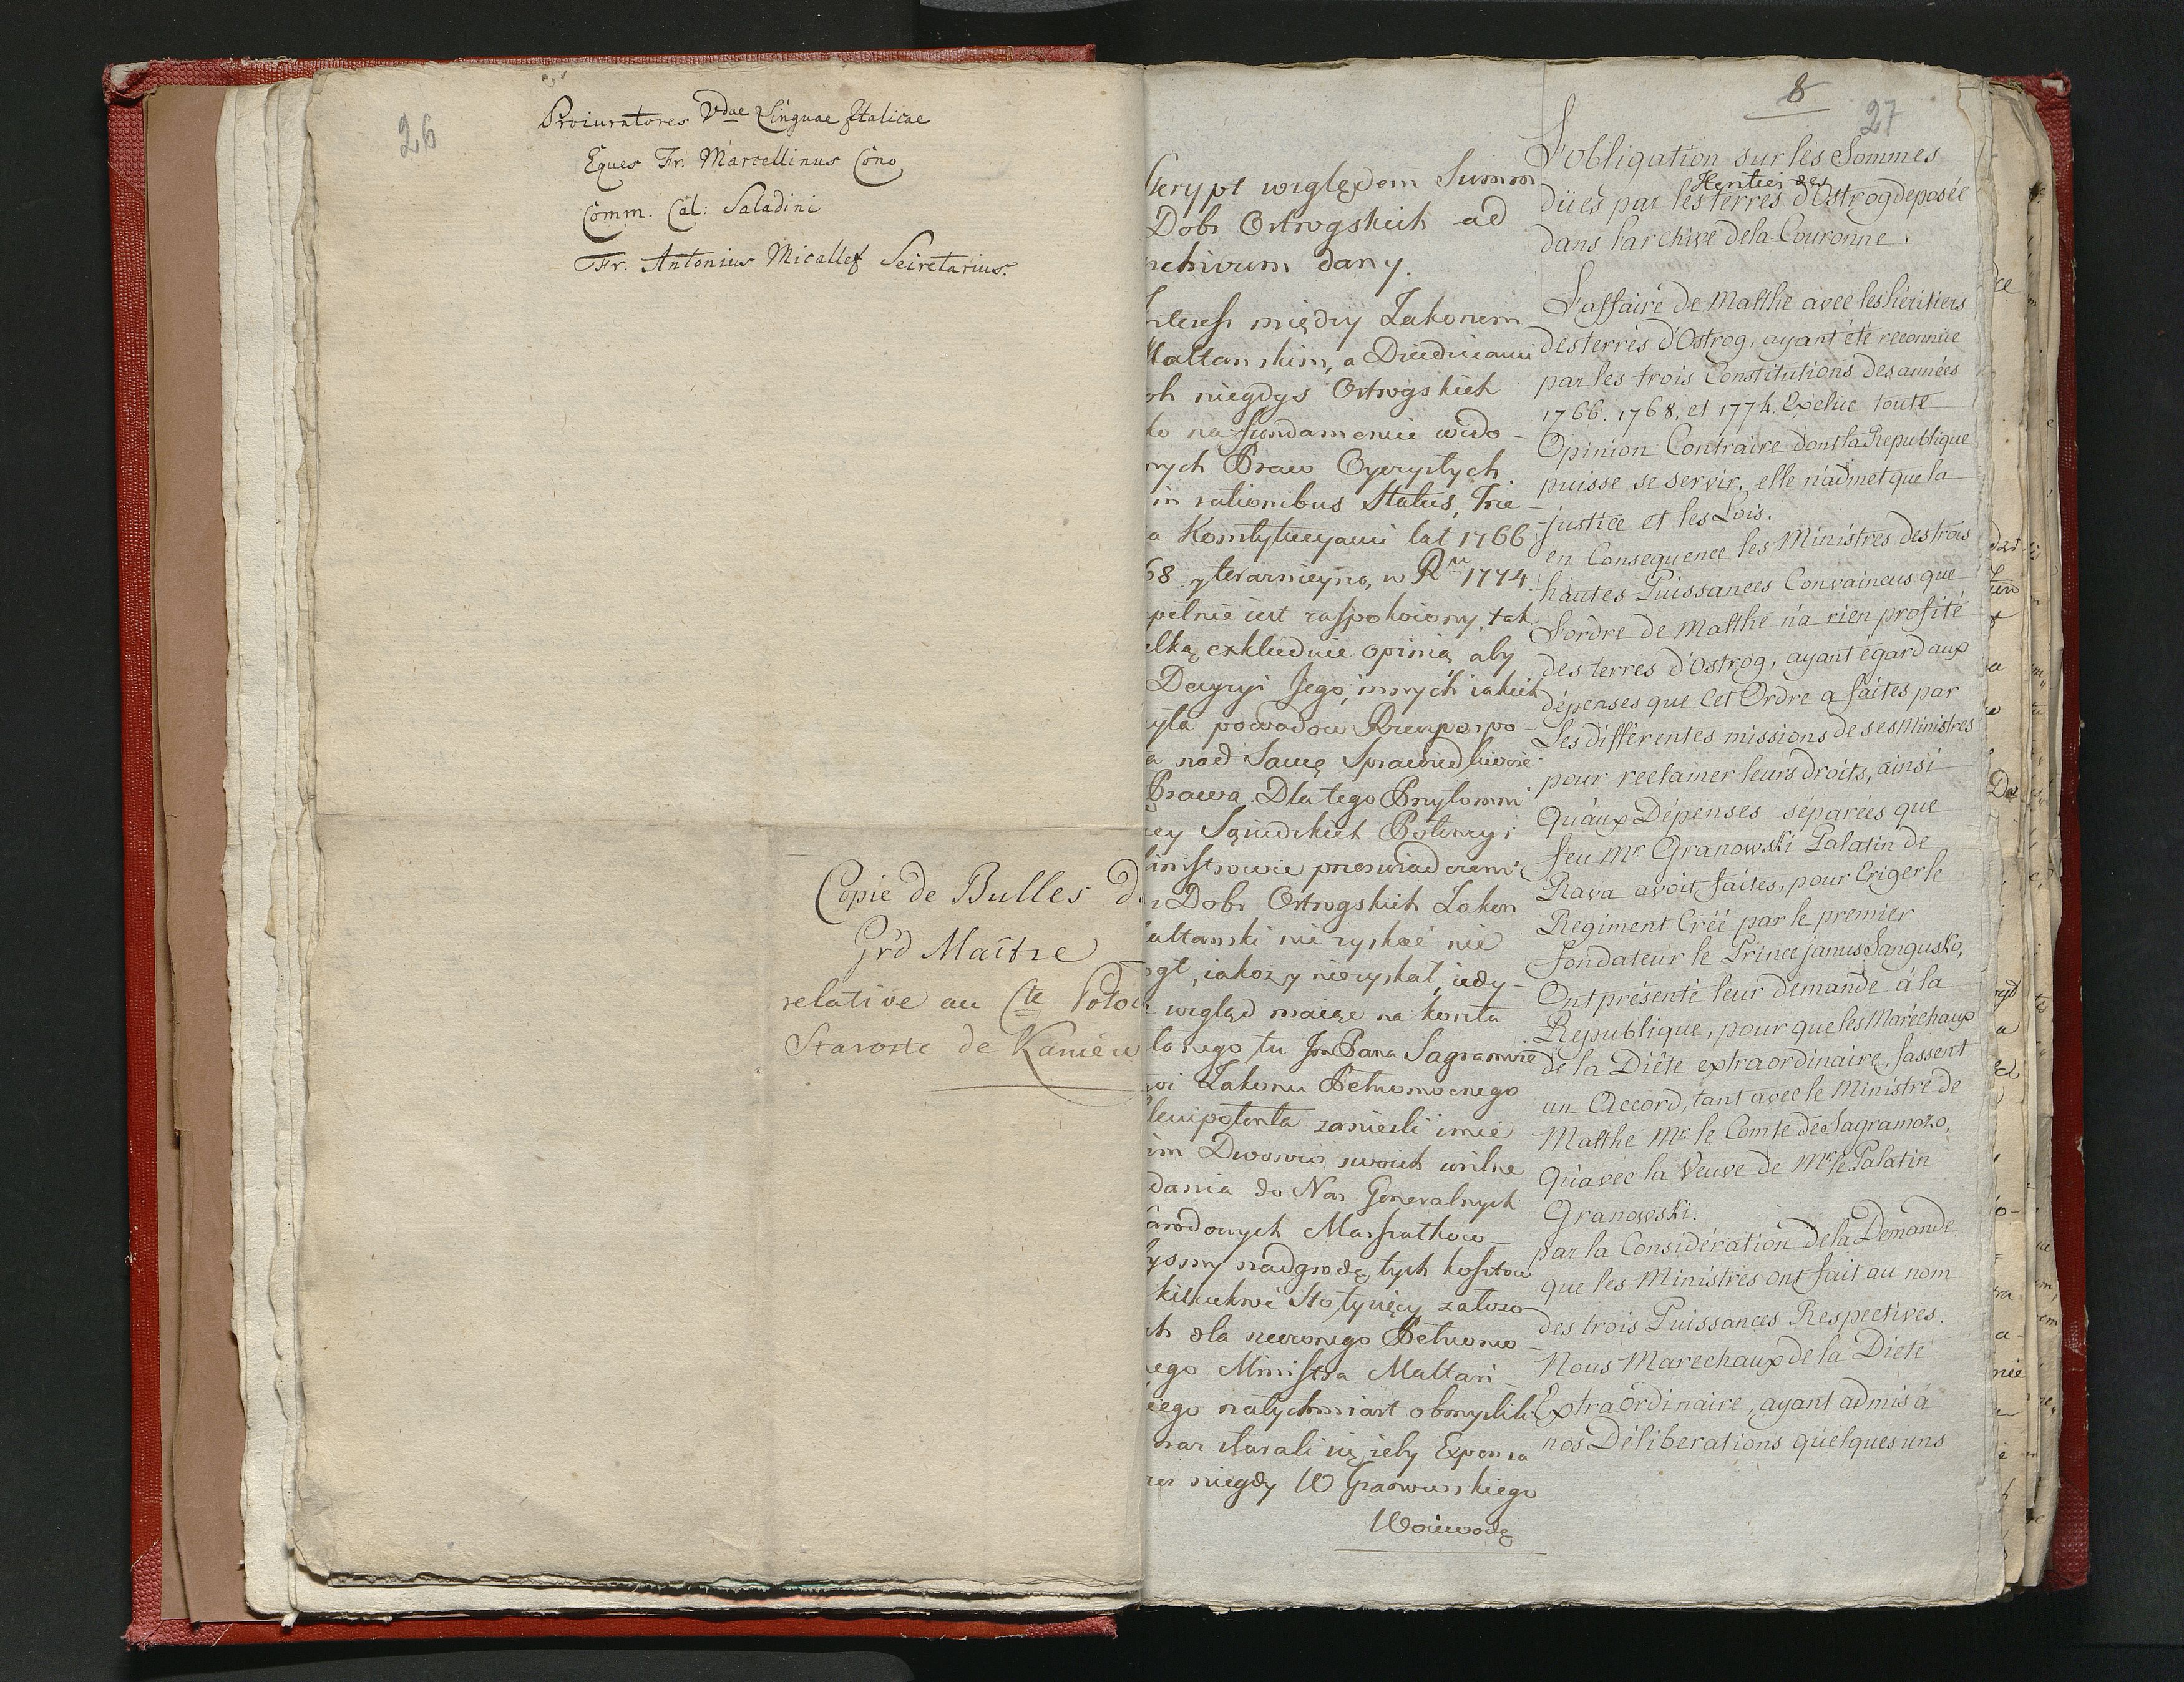 26
Proiuratores Vdae Linguae Italicae
Eques Fr. Marcellinus Cono
Comm. Cal: Saladini
Fr. Antonius Micallef Seiretarius.
Copie de Bulles d
Grd Maître
relative au Cte Poto
Staroste de Kaniew
Skrypt względem Summ
Dobr Ostrogskich ad
chivum dany.
nteress między Zakonem
Maltanskim, a Dziedzicami
ob niegdys Ostrogskich
ko na fundamencie wido-
nych Praw Oyczystych
in rationibus Status, Trze
a Konstytucyami lat 1766
68 y teraznieyszą, w Ru 1774
pełnie iest zaspokoiony, tak
elką exkluduie opinią, aby
Decyzyi Jego, innych iakich
yła powodow Rzeczpospo-
a nad Samę Sprawiedliwosc
Prawa. Dla tego Przytomni
ey Sąsiedzkich Potencyi
inistrowie przeswiadczeni
z Dobr Ostrogskich Zakon
altanski nic zyskać nie
ogł, iakoż y niezyskał, iedy-
wzgląd maiąc na koszta
łanego tu Jm Pana Sagramoze
wi Zakonu Pełnomocnego
lenipotenta zanieśli imie
im Dworow swoich usilne
dania do Nas Generalnych
arodowych Marszałkow-
ysmy nadgrodę tych kosztow
kilkukroć Stotysięcy załozo-
ch dla rzeczonego Pełnomo-
ego Ministra Maltań-
iego natychmiast obmyslili.
oraz starali się, żeby Expensa
zez niegdy W Granowskiego
Woiewodę
8
27
L'obligation sur les Sommes
Heritiers des
dües par les terres d'Ostrog deposée
dans l'archive de la Couronne.
L'affaire de Malthe avec les héritiers
des terres d'Ostrog, ayant été reconnüe
par les trois Constitutions des années
1766. 1768. et 1774. Exclue toute
Opinion Contraire dont la Republique
puisse se servir, elle n'admet que la
justice et les Lois.
en Consequence les Ministres des trois
hautes Puissances Convaincus que
l'ordre de Malthe n'a rien profité
des terres d'Ostrog, ayant égard aux
dépenses que Cet Ordre a faites par
Les différentes missions de ses Ministres
pour reclamer leurs droits, ainsi
Qu'aux Dépenses séparées que
feu Mr Granowski Palatin de
Rava avoit faites, pour Eriger le
Regiment Créé par le premier
fondateur le Prince janus Sangusko,
Ont présenté leur demande à la
Republique, pour que les Maréchaux
de la Diête extraordinaire, fassent
un Accord, tant avec le Ministre de
Malthe Mr. le Comte de Sagramozo,
Qu'avec la Veuve de Mr le Palatin
Granowski.
par la Considération de la Demande
que les Ministres ont fait au nom
des trois Puissances Respectives.
Nous Marechaux de la Diete
Extraordinaire, ayant admis à
nos Déliberations quelques uns